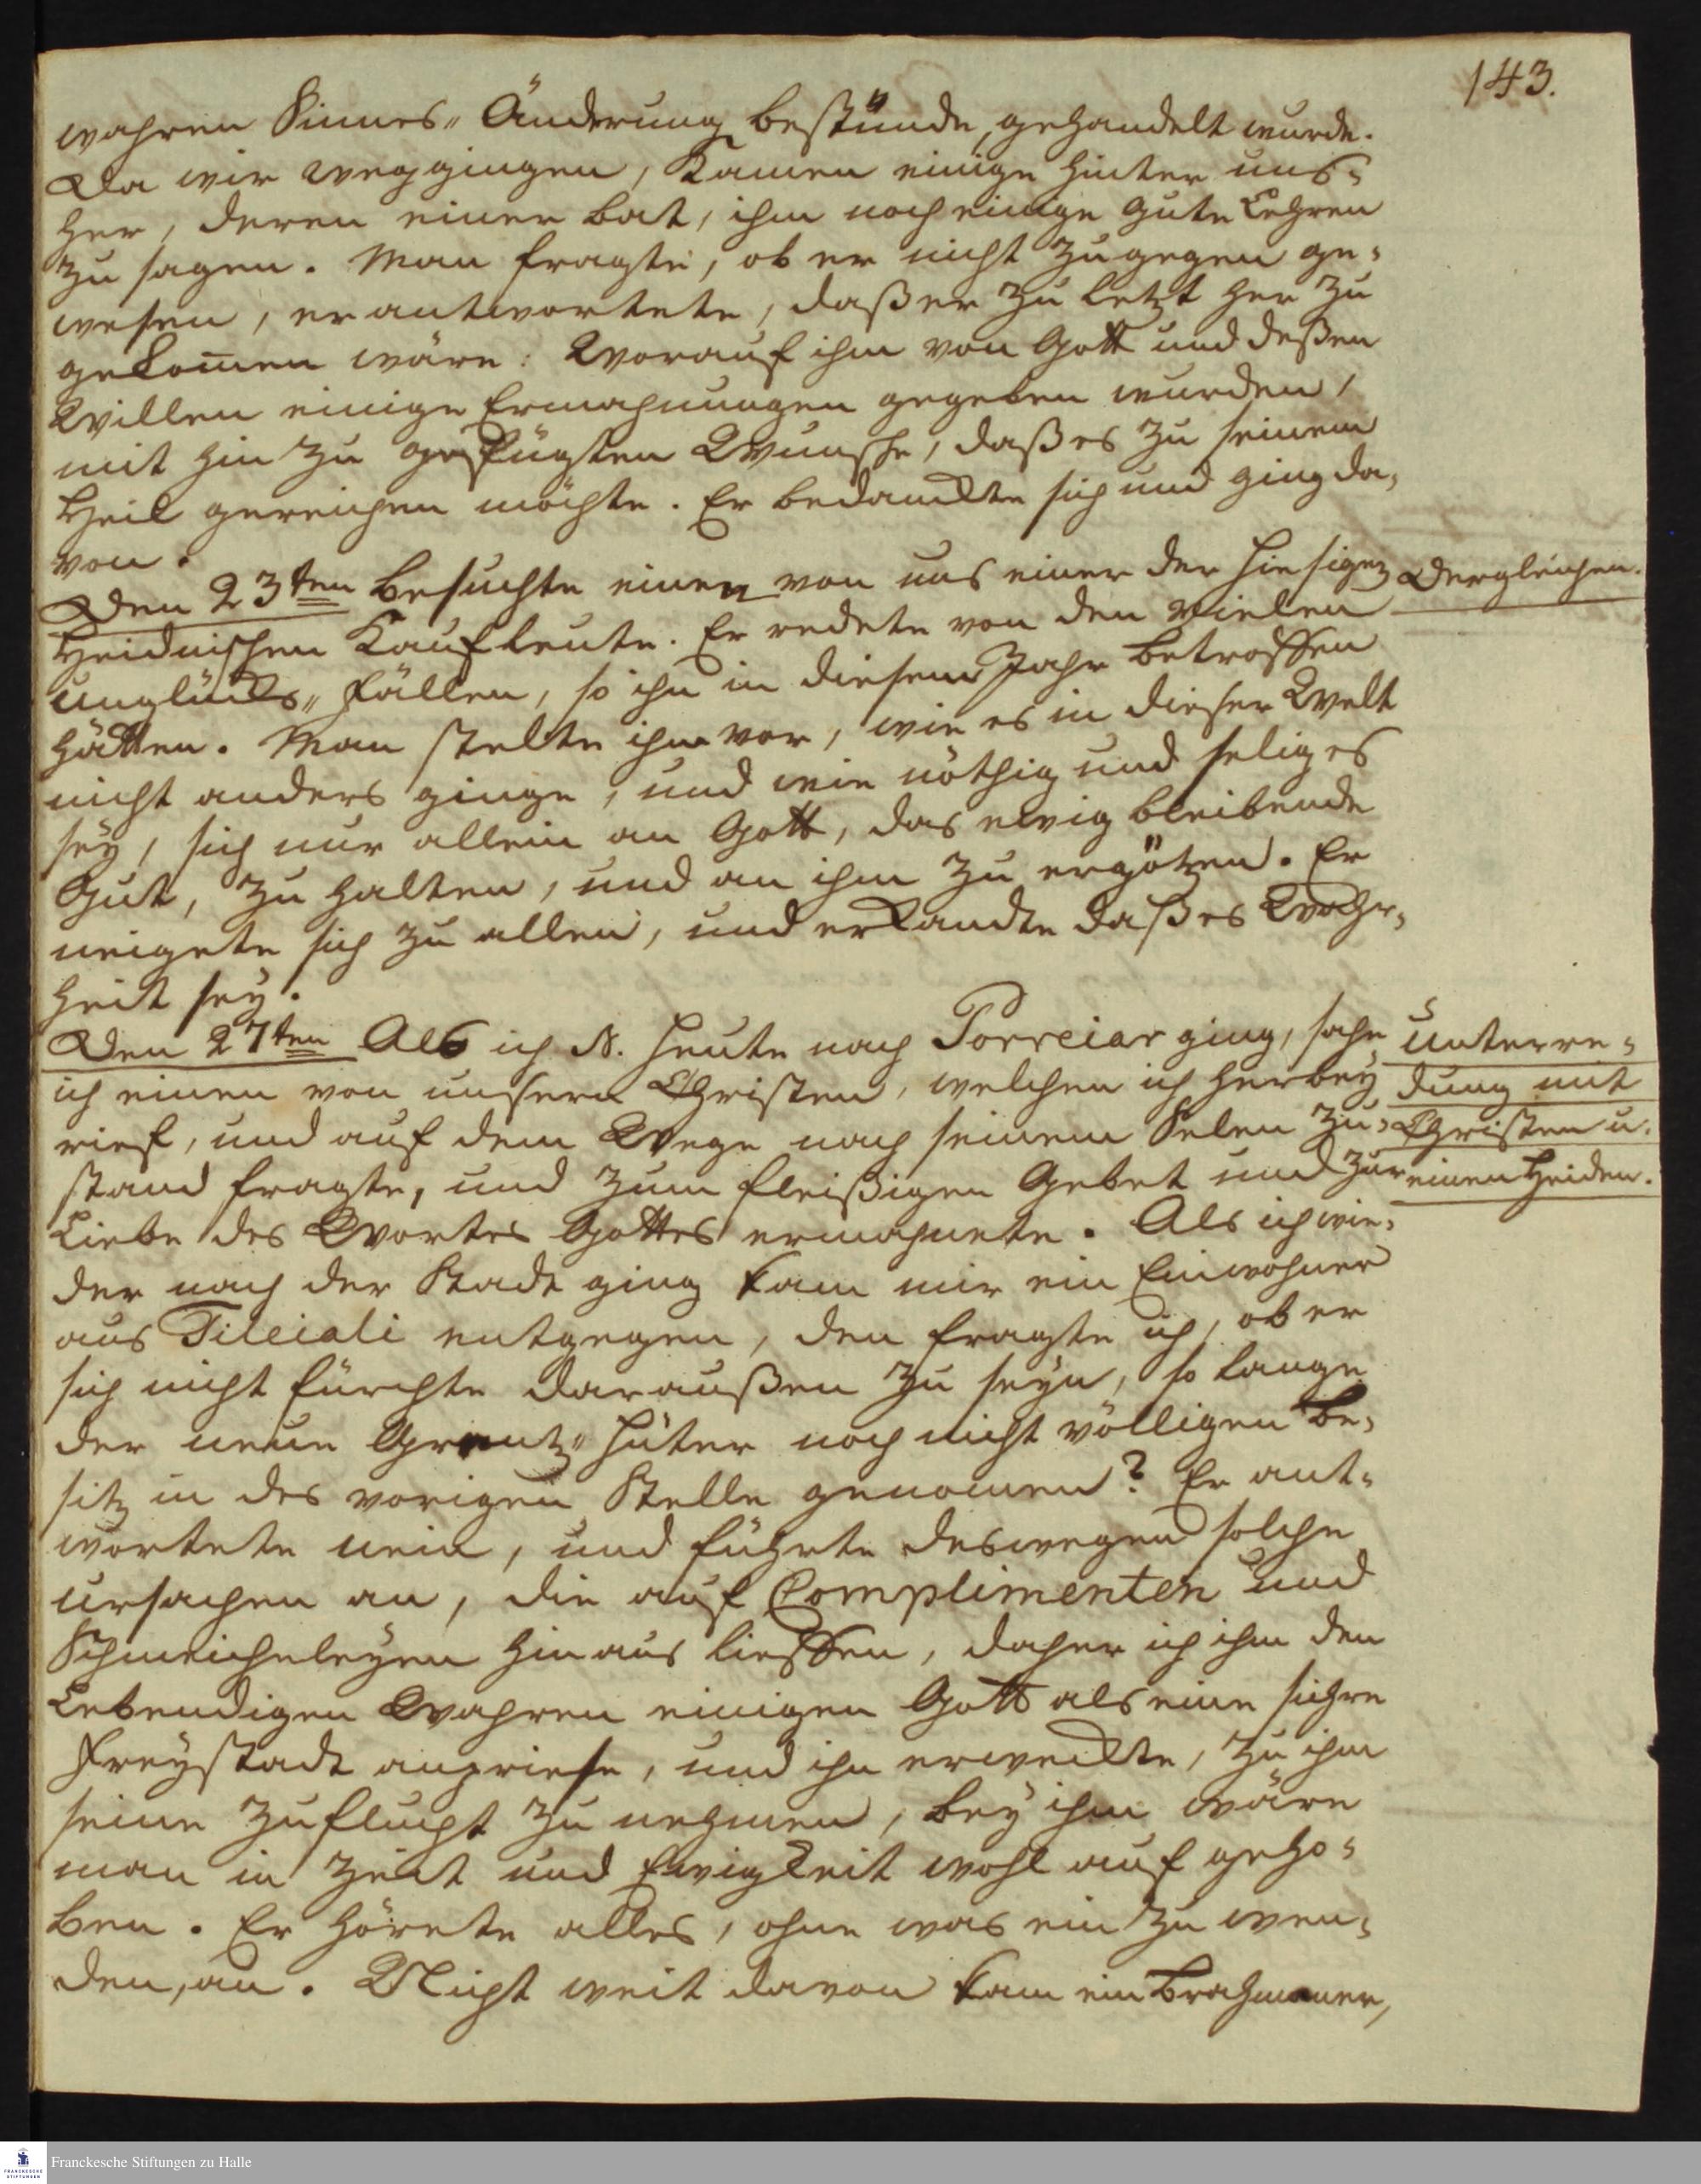 143.
wahren Sinnes„ Änderung bestünde, gehandelt wurde.
Da wir weggingen, kamen einige hinter uns-
her, deren einer bat, ihm noch einige gute Lehren
zu sagen. Man fragte, ob er nicht zugegen ge-
wesen, er antwortete, daß er zu letzt her zu
gekom̄en wäre: Worauf ihm von Gott und deßen
Willen einige Ermahnungen gegeben wurden,
mit hin zu gefügten Wunsche, daß es zu seinem
Heil gereichen möchte. Er bedanckte sich und ging da-
von.
Den 23ten besuchte einen von uns einer der hiesigen
Heidnischen Kaufleute. Er redete von den vielen
Unglücks„ Fällen, so ihn in diesem Jahr betroffen
hätten. Man stelte ihm vor, wie es in dieser Welt
nicht anders ginge, und wie nöthig und selig es
sey, sich nur allein an Gott, das ewig bleibende
Gut, zu halten, und an ihm zu ergötzen. Er
neigete sich zu allen, und erkandte daß es Wahr-
heit sey.
Dergleichen.
Den 27ten Als ich N. heute nach Porreiar ging, sahe
ich einen von unsern Christen, welchen ich herbey
rief, und auf dem Wege nach seinem Selen Zu-
stand fragte, und zum fleißigen Gebet und zur
Liebe des Wortes Gottes ermahnete. Als ich wie-
der nach der Stadt ging kam mir ein Einwohner
aus Tilleiali entgegen, den fragte ich, ob er
sich nicht fürchte daraußen zu seyn, so lange
der neue Grentz„ Hüter noch nicht völligen Be-
sitz in des vorigen Stelle genomen? Er ant-
wortete nein, und führte deswegen solche
Ursachen an, die auf Complimenten und
Schmeicheleyen hinaus lieffen, daher ich ihm den
Lebendigen Wahren einigen Gott als eine sichre
Freystadt anpriese, und ihn erweckte, zu ihm
seine Zuflucht zu nehmen, bey ihm wäre
man in Zeit und Ewigkeit wohl auf geho-
ben. Er hörete alles, ohne was ein zu wen-
den, an. Nicht weit davon kam ein Brahmaner,
Unterre-
dung mit
Christen u.
einen Heiden.
Franckesche Stiftungen zu Halle
FRANCKESCHE
STIFTUNGEN